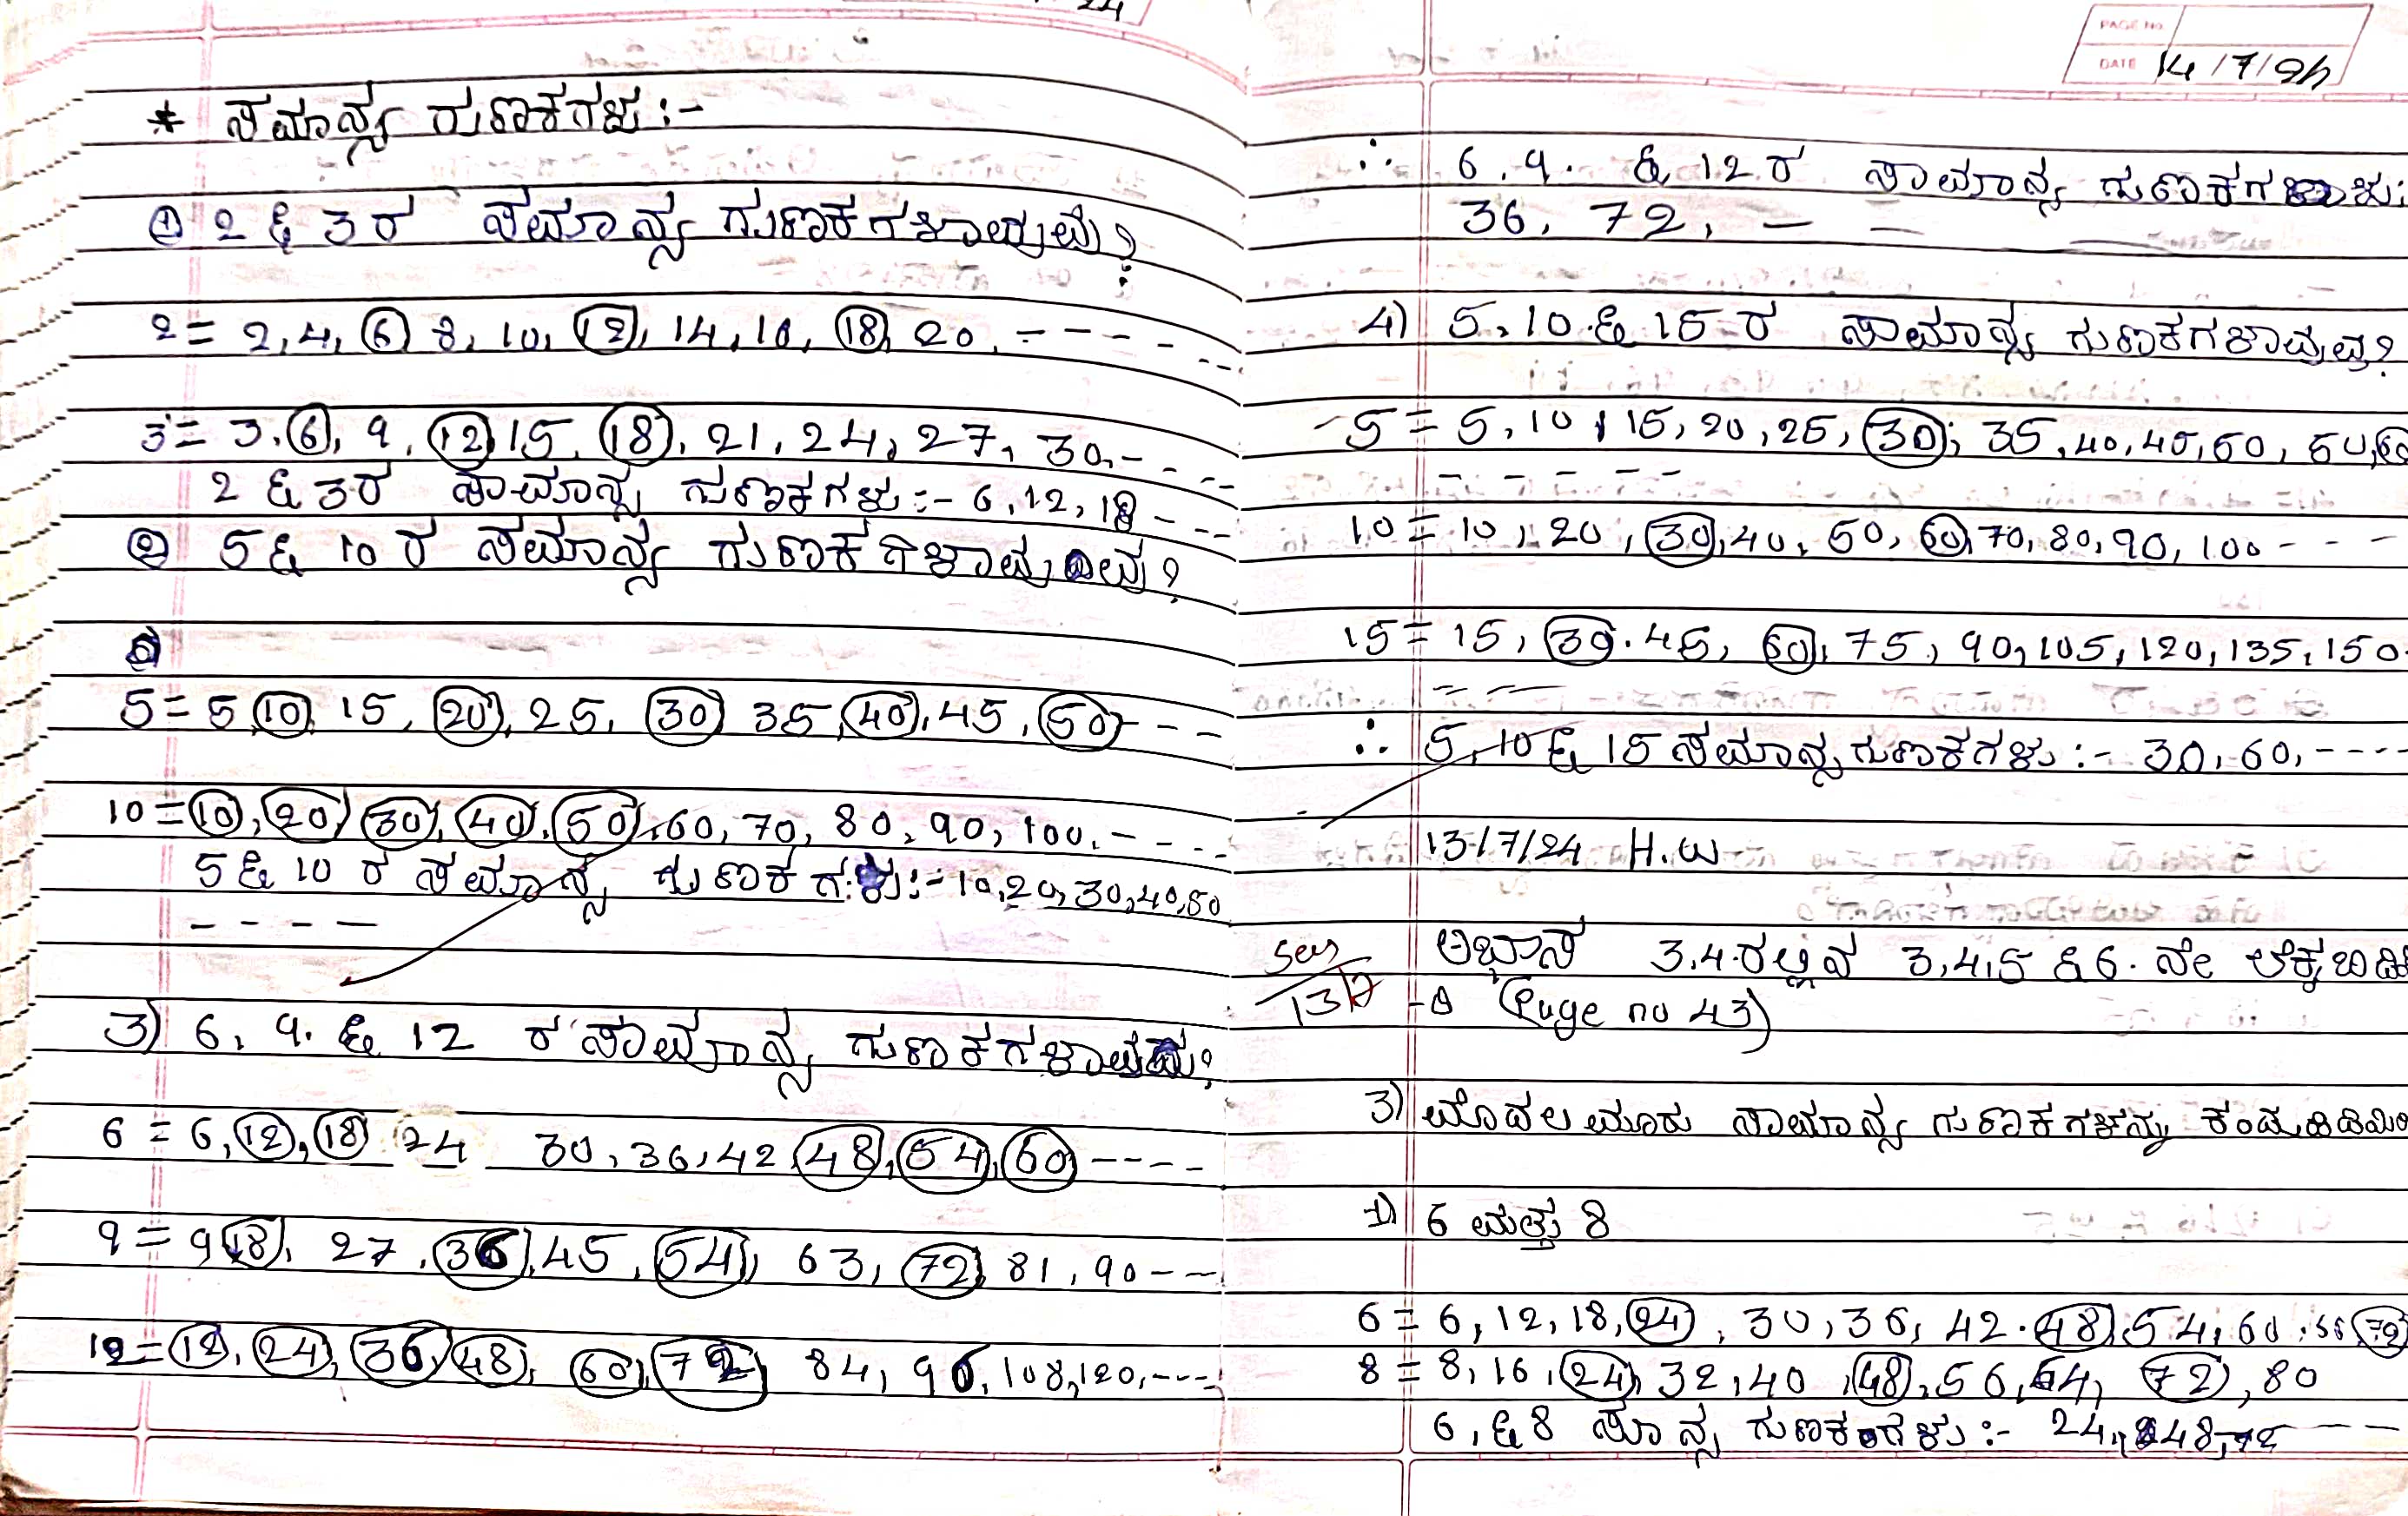 * ಸಮಾನ್ಯ ಗುಣಕಗಳು :-
1) 2 & 3ರ ಸಮಾನ್ಯ ಗುಣಕಗಳಾವುವು?
2 = 2, 4, 6, 8, 10, 12, 14, 16, 18, 20, - - - - - -
3 = 3, 6, 9, 12, 15, 18, 21, 24, 27, 30, - - - - -
2 & 3ರ ಸಾಮಾನ್ಯ ಗುಣಕಗಳು :- 6, 12, 18 - - -
2) 5 & 10 ರ ಸಮಾನ್ಯ ಗುಣಕಗಳಾವುವು?
5 = 5, 10, 15, 20, 25, 30, 35, 40, 45, 50 - - -
10 = 10, 20, 30, 40, 50, 60, 70, 80, 90, 100, - - - - -
5 & 10 ರ ಸಮಾನ್ಯ ಗುಣಕಗಳು :- 10, 20, 30, 40, 50
- - - -
3) 6, 9. & 12 ರ ಸಾಮಾನ್ಯ ಗುಣಕಗಳಾವುವು?
6 = 6, 12, 18 24 30, 36, 42 48, 54, 60 - - - -
9 = 9 18, 27, 36, 45, 54, 63, 72, 81, 90 - - -
12 = 12, 24, 36, 48, 60, 72, 84, 96, 108, 120, - - - -
PAGE NO.
DATE 14/7/24
∴ 6, 9. & 12ರ ಸಾಮಾನ್ಯ ಗುಣಕಗಳು:
36, 72, - -
4) 5, 10 & 15 ರ ಸಾಮಾನ್ಯ ಗುಣಕಗಳಾವುವು?
5 = 5, 10, 15, 20, 25, 30, 35, 40, 45, 50, 50, 60
- - - - - -
10 = 10, 20, 30, 40, 50, 60, 70, 80, 90, 100 - - -
15 = 15, 30. 45, 60, 75, 90, 105, 120, 135, 150
- - - -
∴ 5, 10 & 15 ಸಮಾನ್ಯ ಗುಣಕಗಳು :- 30, 60, - - - -
13/7/24 H.W
ಅಭ್ಯಾಸ 3.4.ರಲ್ಲಿನ 3, 4, 5 & 6. ನೇ ಲೆಕ್ಕ
(Page no 43)
13/7
3) ಮೊದಲ ಮೂರು ಸಾಮಾನ್ಯ ಗುಣಕಗಳನ್ನು
1) 6 ಮತ್ತು 8
6 = 6, 12, 18, 24, 30, 36, 42. 48, 54, 60, 66 72
8 = 8, 16, 24, 32, 40, 48, 56, 64, 72, 80
6, & 8 ಮಾನ್ಯ ಗುಣಕಗಳು :- 24, 48, 72 - - -